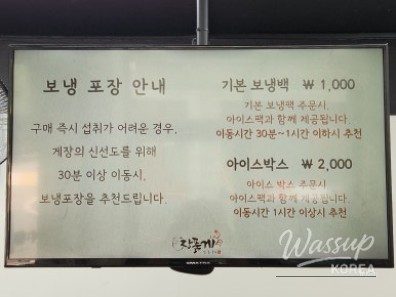 보냉 포장 안내
구매 즉시 섭취가 어려운 경우,
게장의 신선도를 위해
30분 이상 이동시,
보냉포장을 추천드립니다.
기본 보냉백 ₩ 1,000
기본 보냉백 주문시
아이스팩과 함께 제공됩니다.
이동시간 30분~1시간 이하시 추천
아이스박스 ₩ 2,000
아이스 박스 주문시
아이스팩과 함께 제공됩니다.
이동시간 1시간 이상시 추천
장꽃게
Wassup
KOREA